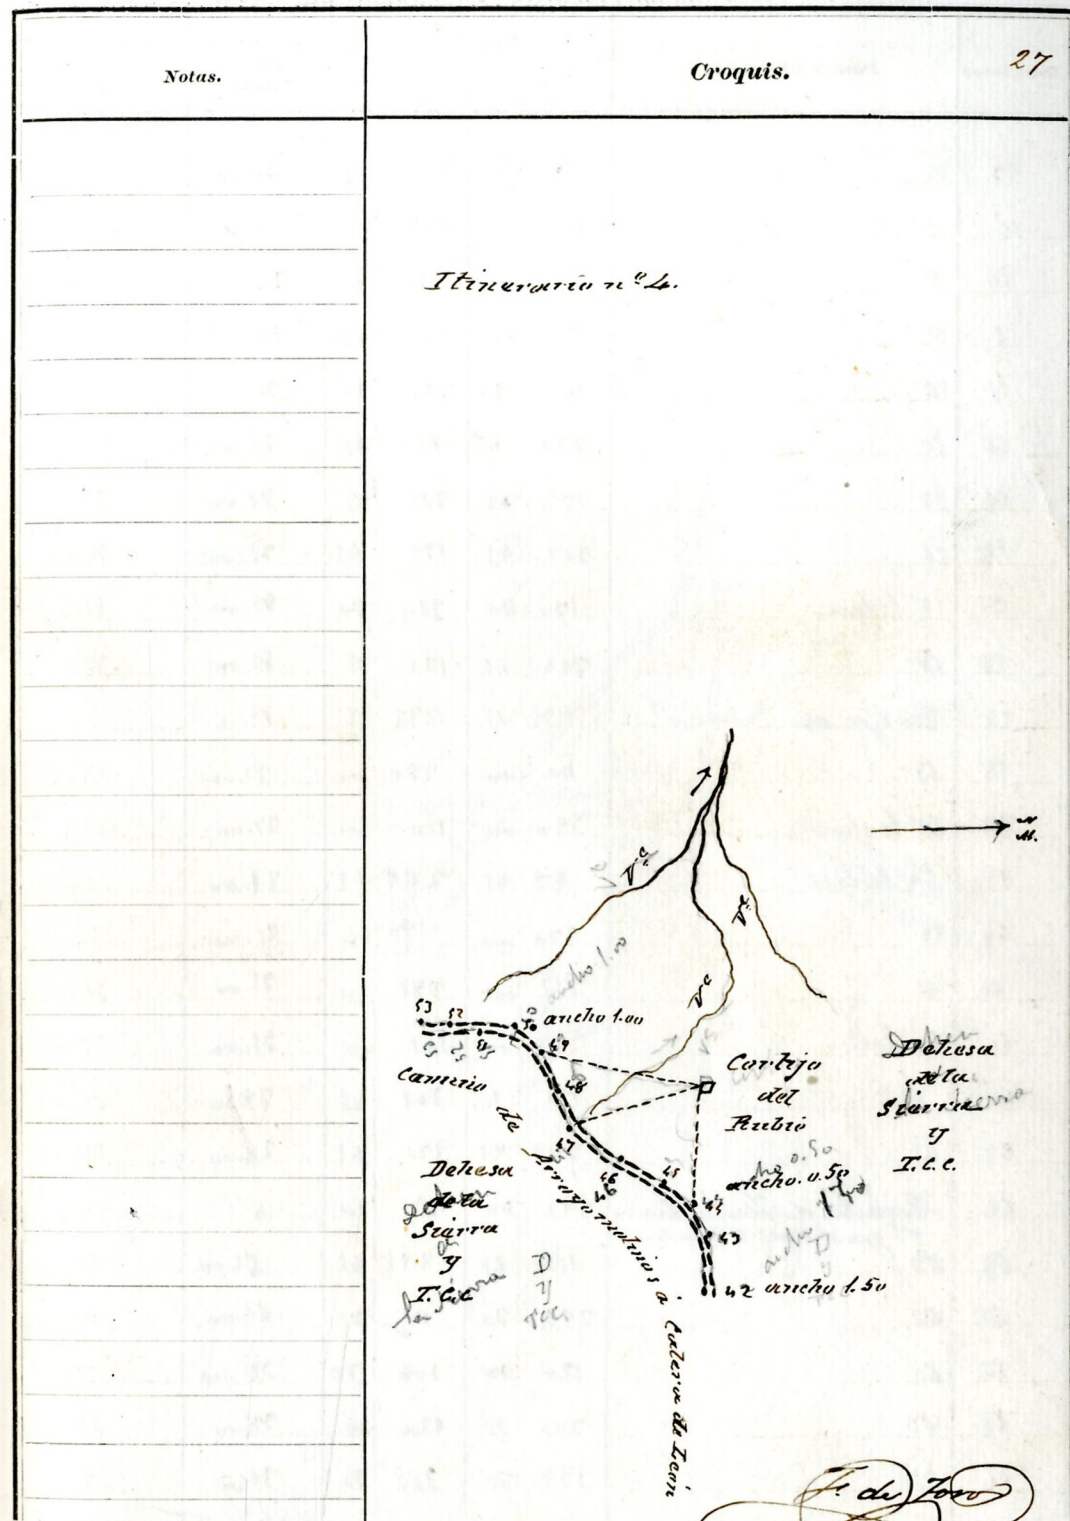 Notas.
Croquis.
27
Itinerario nº 4.
N
M.
Vª
Vª
Vª
53
52
51
50
ancho 1.00
49
48
47
46
45
44
43
42
ancho 1.50
ancho. 0.50
Camino
de
Arroyomolinos á Calera de León
Cortijo
del
Rubio
Dehesa
de la
Sierra
y
T.C.C.
Dehesa
de la
Sierra
y
T.C.C
ancho 1.00
F. de Toro